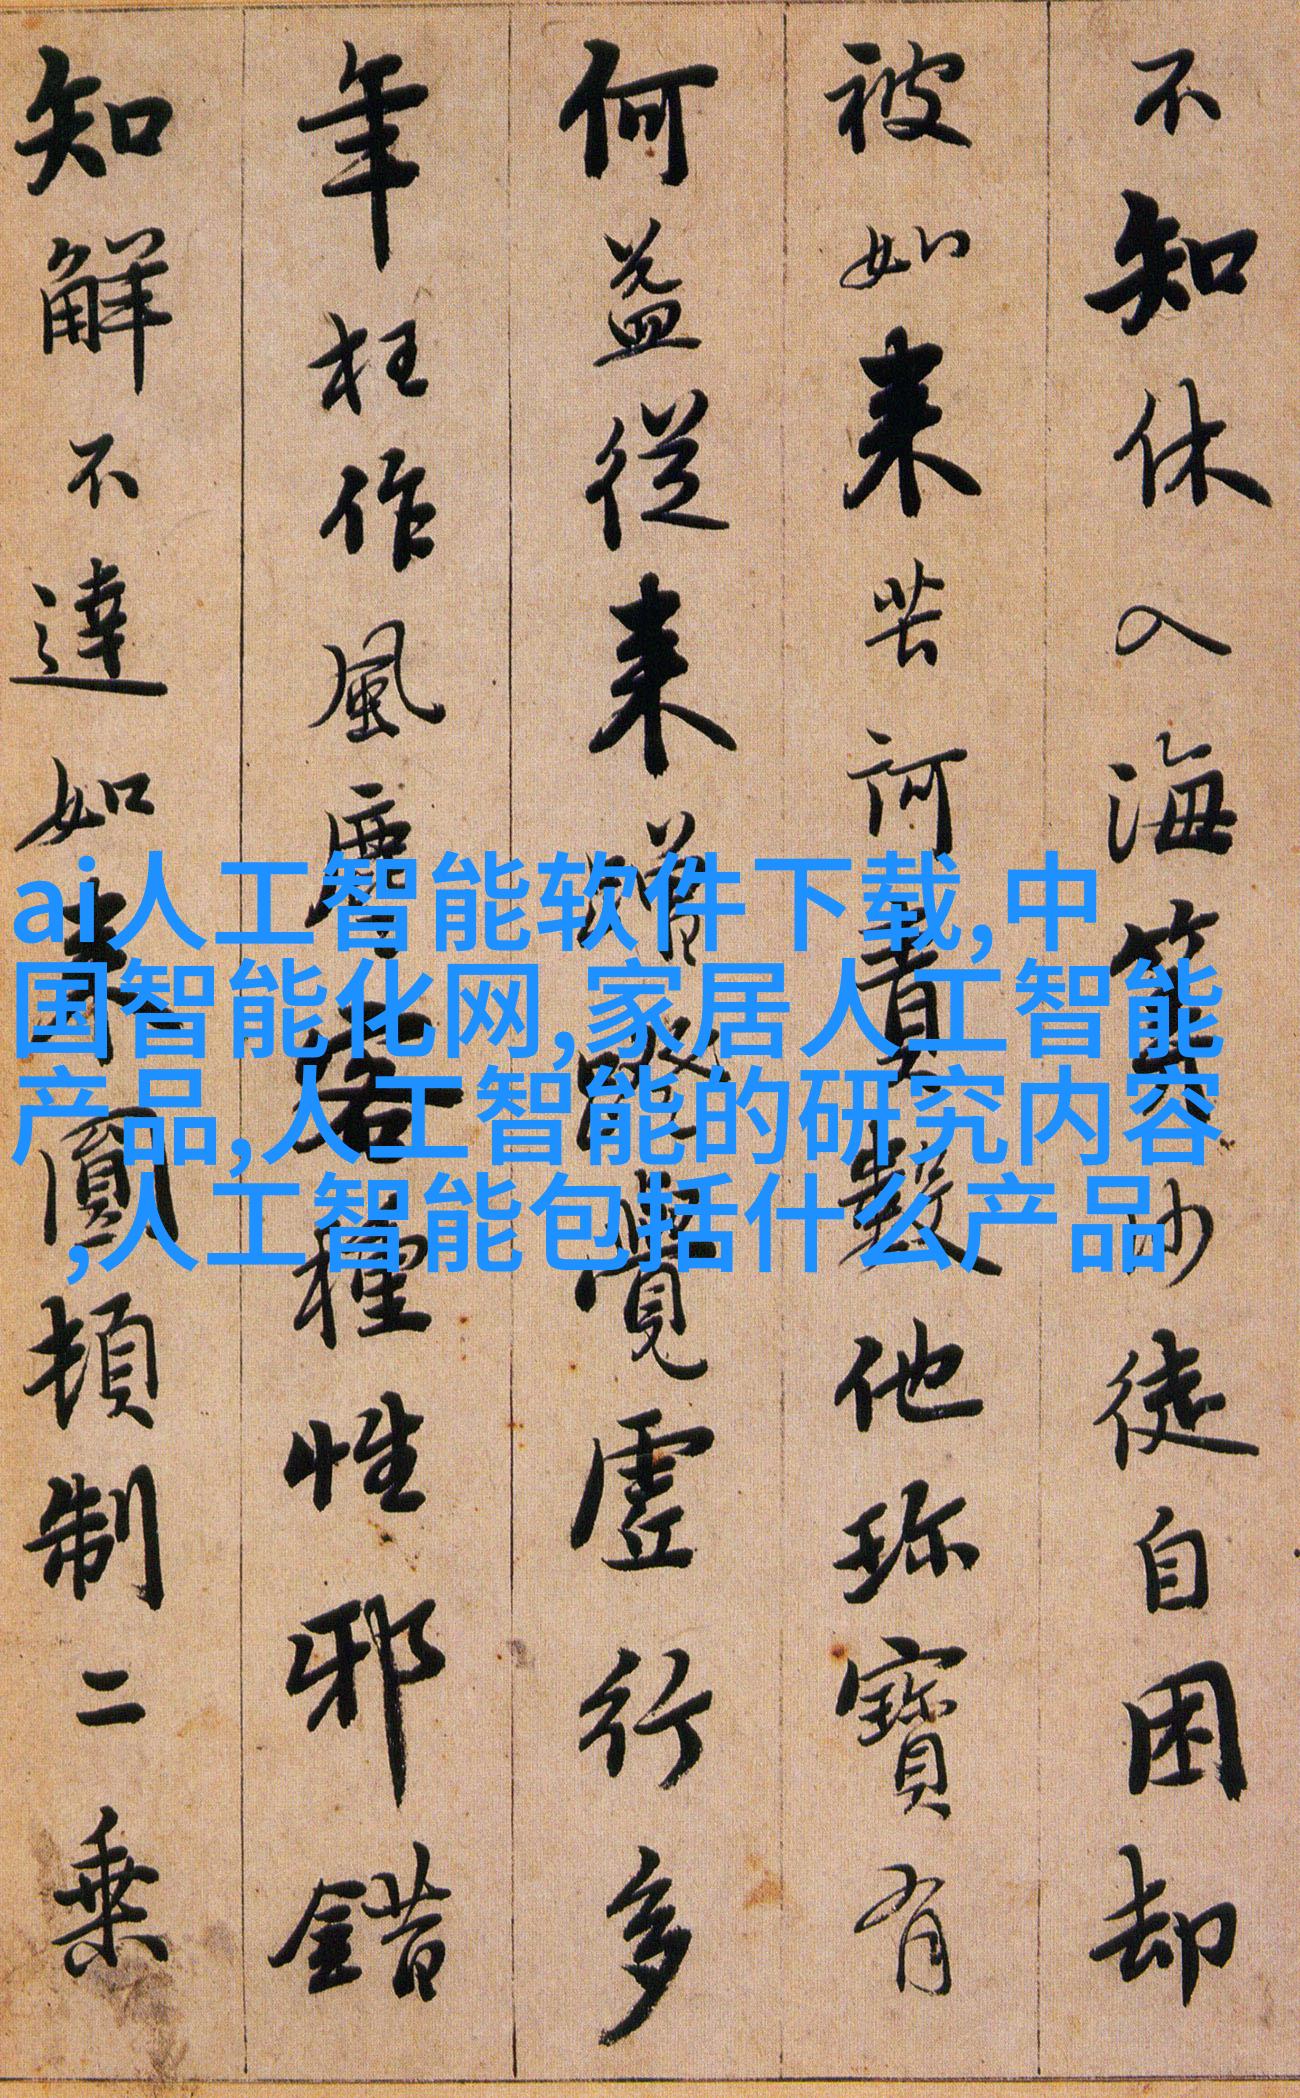 不知休入海算沙徒自困却
被如來苦訶責數他珎寶有
何益從來蹭蹬覺虛行多
年枉作風塵客種性邪錯
知解不達如來圓頓制二乗
ai人工智能软件下载,中
国智能化网,家居人工智能
产品,人工智能的研究内容
,人工智能包括什么产品